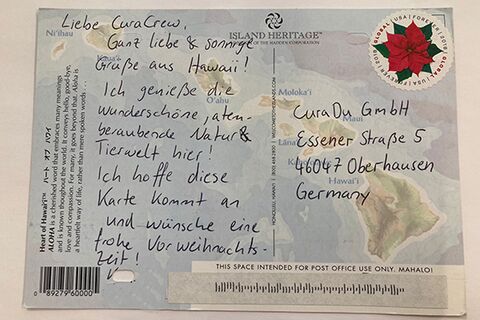 Liebe CuraCrew,
Ganz liebe & sonnige
Grüße aus Hawaii!
Ich genieße die
wunderschöne, atem-
beraubende Natur &
Tierwelt hier!
Ich hoffe diese
Karte kommt an
und wünsche eine
frohe Vorweihnachts-
zeit!
ISLAND HERITAGE™
A DIVISION OF THE MADDEN CORPORATION
GLOBAL USA FOREVER 2018
CuraDu GmbH
Essener Straße 5
46047 Oberhausen
Germany
Ni'ihau
Kaua'i
O'ahu
Moloka'i
Maui
Hawai'i
Heart of Hawai'i™ ハート オブ ハワイ
ALOHA is a cherished word that embraces many meanings
and is known thoughout the world. It conveys hello, good-bye,
love and compassion. For many, it goes beyond that. Aloha is
a heartfelt way of life, rather than mere spoken words...
0 89279 60000
THIS SPACE INTENDED FOR POST OFFICE USE ONLY. MAHALO!